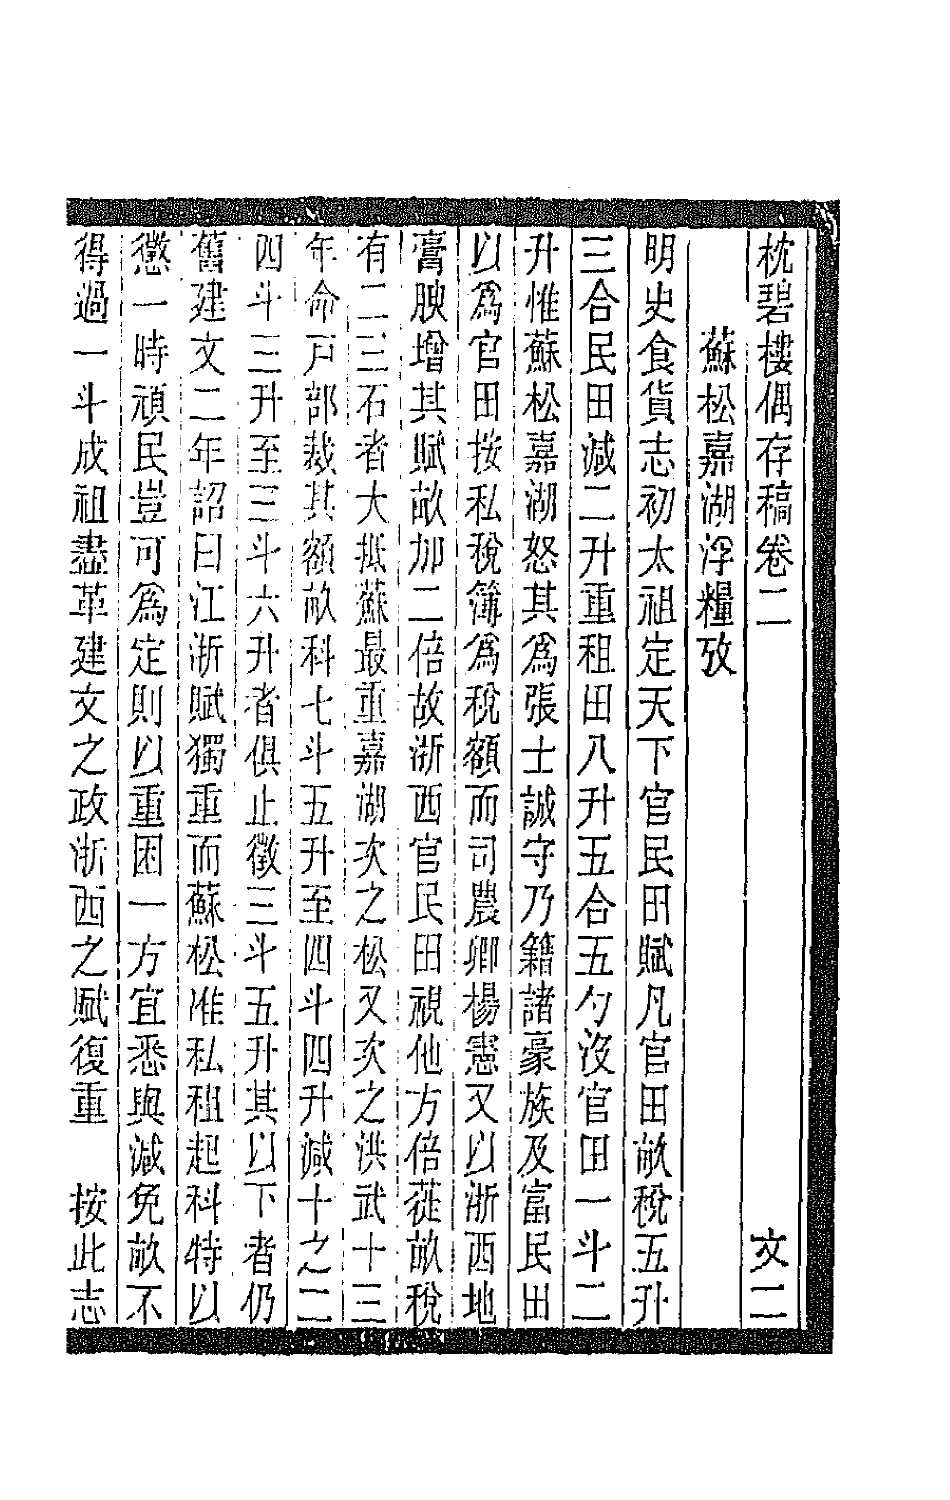 枕碧樓偶存稿卷二　文二
蘇松嘉湖浮糧攷
明史食貨志初太祖定天下官民田賦凡官田畝稅五升
三合民田減二升重租田八升五合五勺沒官田一斗二
升惟蘇松嘉湖怒其爲張士誠守乃籍諸豪族及富民田
以爲官田按私稅簿爲稅額而司農卿楊憲又以浙西地
膏腴增其賦畝加二倍故浙西官民田視他方倍蓰畝稅
有二三石者大抵蘇最重嘉湖次之松又次之洪武十三
年命戸部裁其額畝科七斗五升至四斗四升減十之二
四斗三升至三斗六升者俱止徵三斗五升其以下者仍
舊建文二年詔曰江浙賦獨重而蘇松准私租起科特以
懲一時頑民豈可爲定則以重困一方宜悉與減免畝不
得過一斗成祖盡革建文之政浙西之賦復重　按此志